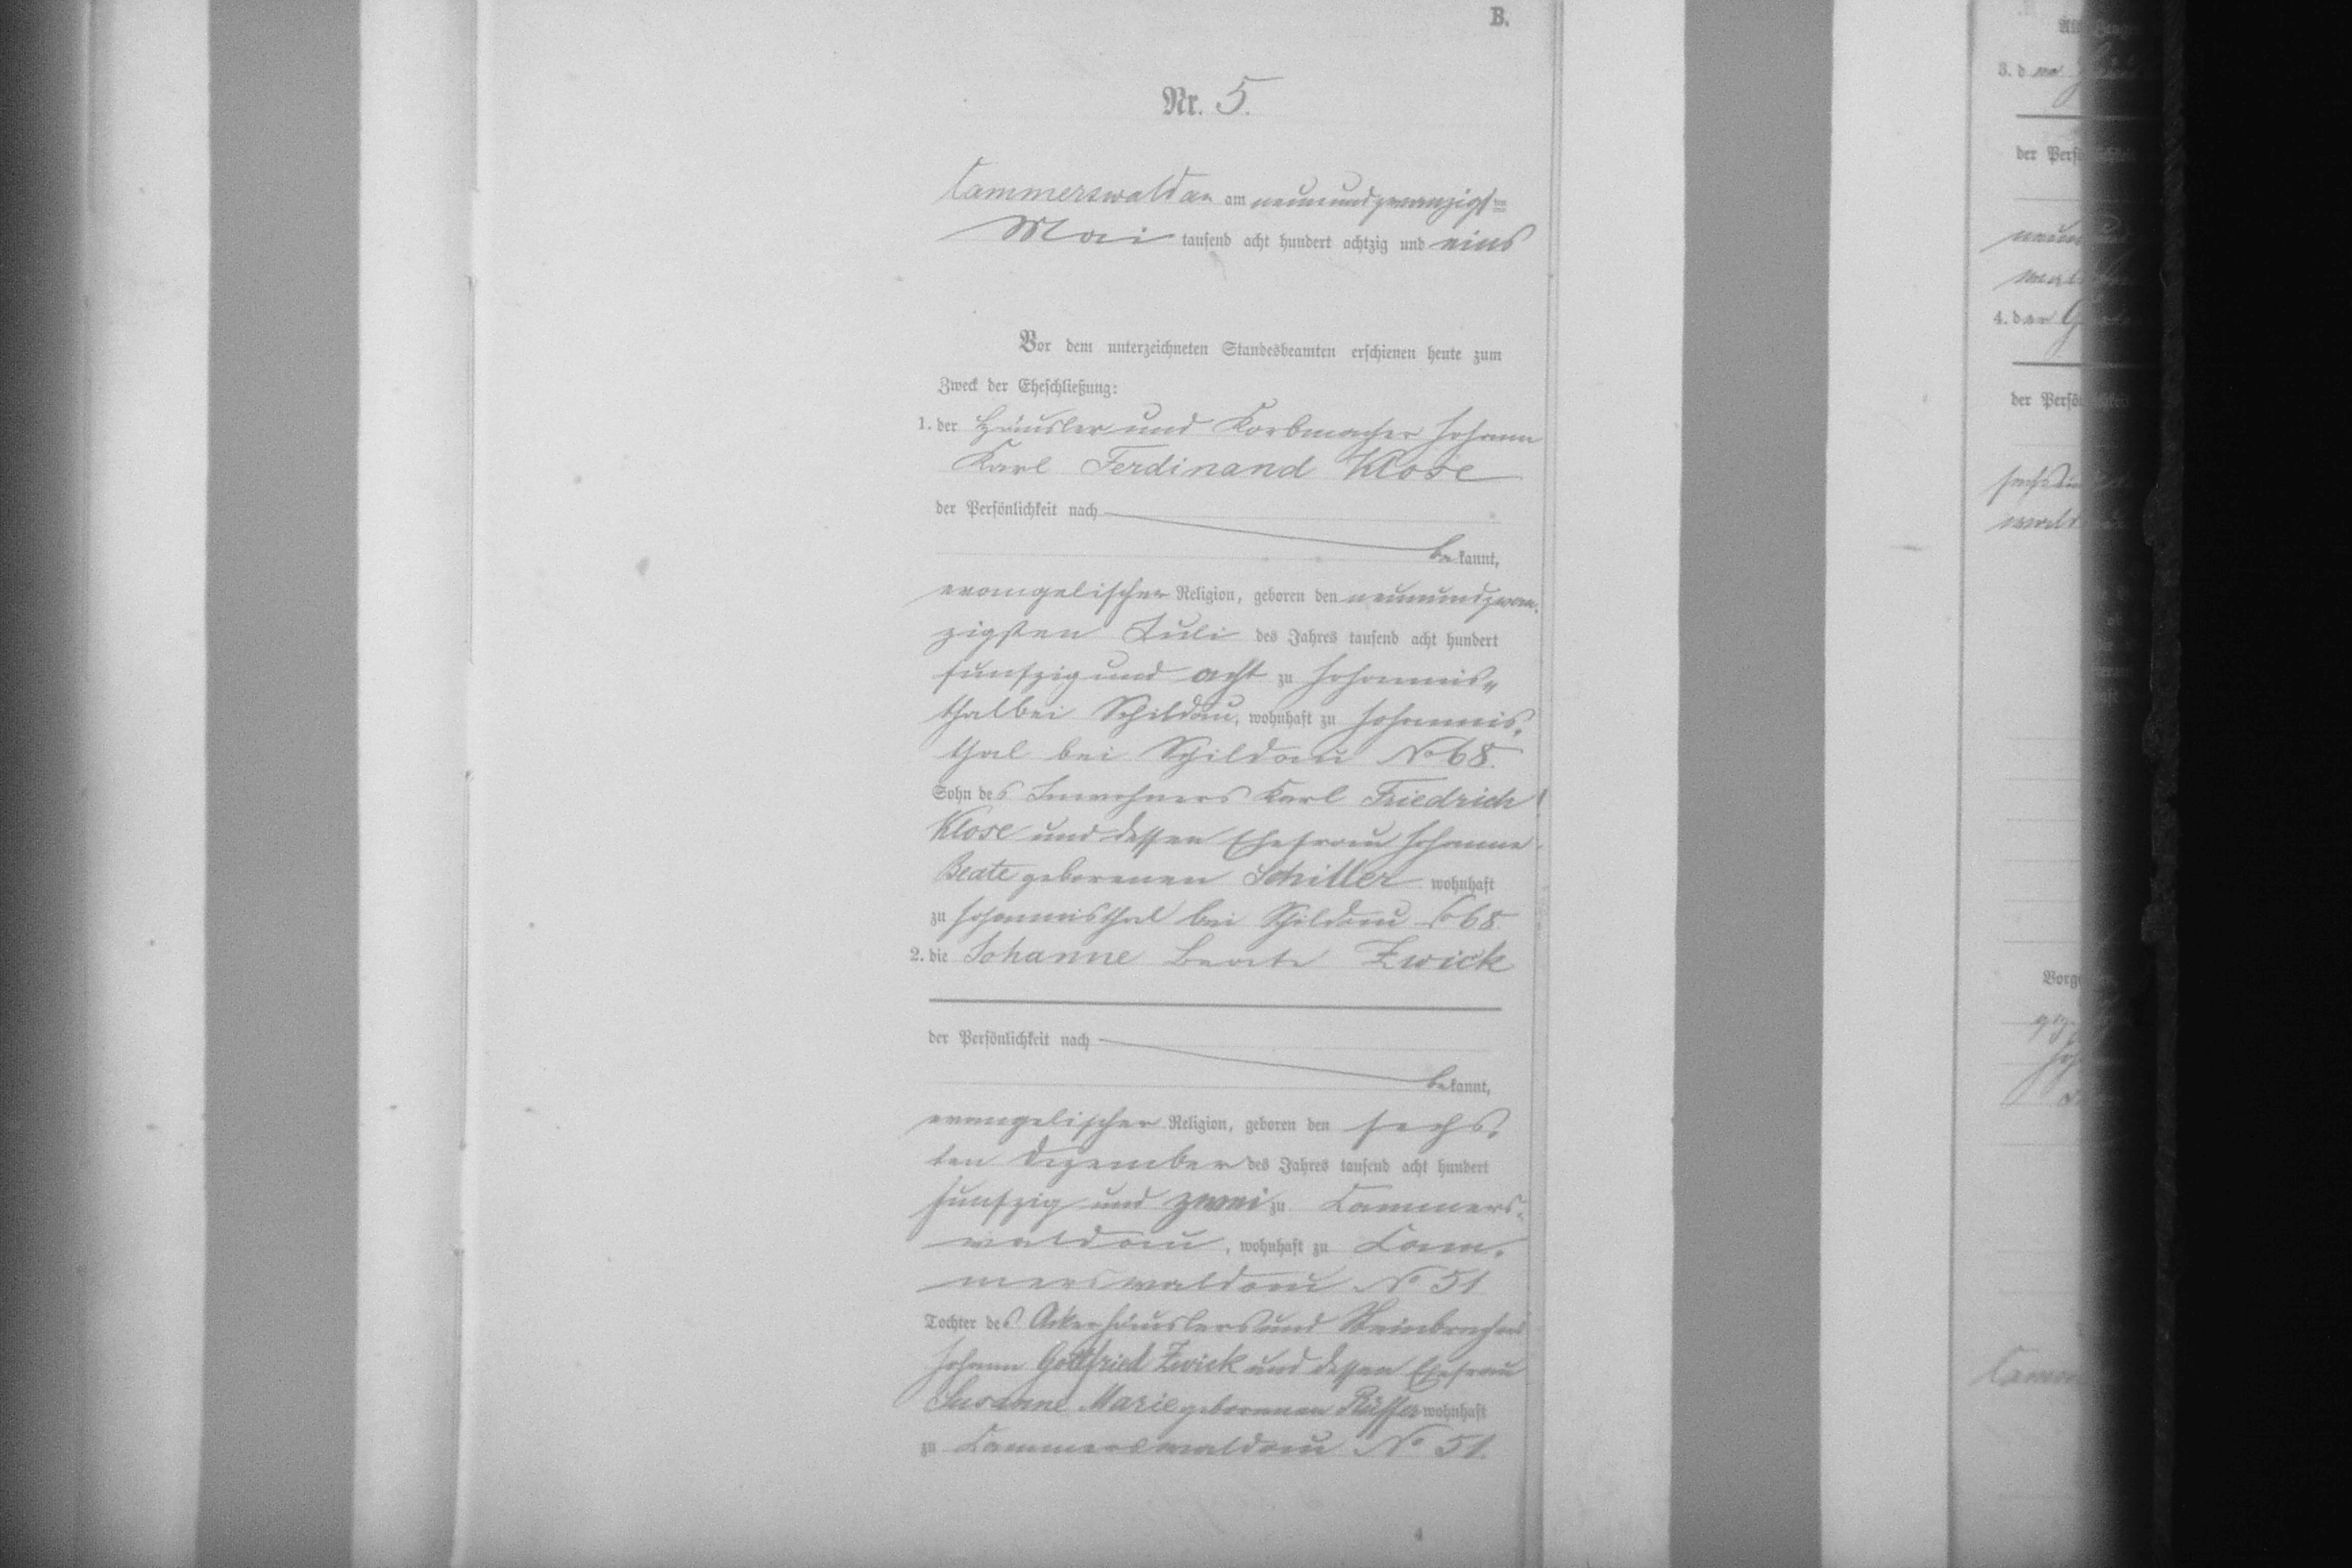 B.
Nr. 5.
Cammerswaldau am neunundzwanzigsten
Mai tausend acht hundert achtzig und eins
Vor dem unterzeichneten Standesbeamten erschienen heute zum
Zweck der Eheschließung:
1. der Häusler und Korbmacher Johann
Karl Ferdinand Klose
der Persönlichkeit nach
bekannt,
evangelischer Religion, geboren den neunundzwan-
zigsten Juli des Jahres tausend acht hundert
funfzig und acht zu Johannis-
thal bei Schildau, wohnhaft zu Johannis-
thal bei Schildau No 68.
Sohn des Inwohners Karl Friedrich
Klose und dessen Ehefrau Johanne
Beate geborenen Schiller wohnhaft
zu Johannisthal bei Schildau No 68.
2. die Johanne Beate Zwick
der Persönlichkeit nach
bekannt,
evangelischer Religion, geboren den sechs-
ten Dezember des Jahres tausend acht hundert
funfzig und zwei zu Cammers-
waldau, wohnhaft zu Cam-
merswaldau No 51
Tochter des Ackerhäuslers und Steinbrechers
Johann Gottfried Zwick und dessen Ehefrau
Susanne Marie geborenen Rüffer wohnhaft
zu Cammerswaldau No 51.
4
3. d
der
neun
4. der
der